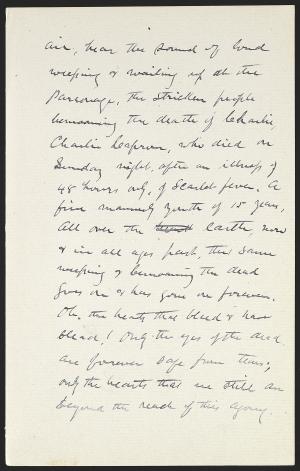 air, hear the sound of loud
weeping & wailing up at the
Parsonage, the stricken people
bemoaning the death of Charlie,
Charlie Leaprou, who died on
Sunday night, after an illness of
48 hours only, of Scarlet fever. A
fine manly youth of 15 years,
All over the earth, now
& in all ages past, this same
weeping & bemoaning the dead
goes on & has gone on forever.
Oh, the hearts that bleed & have
bleed! Only the eyes of the dead
are forever safe from tears;
only the hearts that are still are
beyond the reach of this agony.